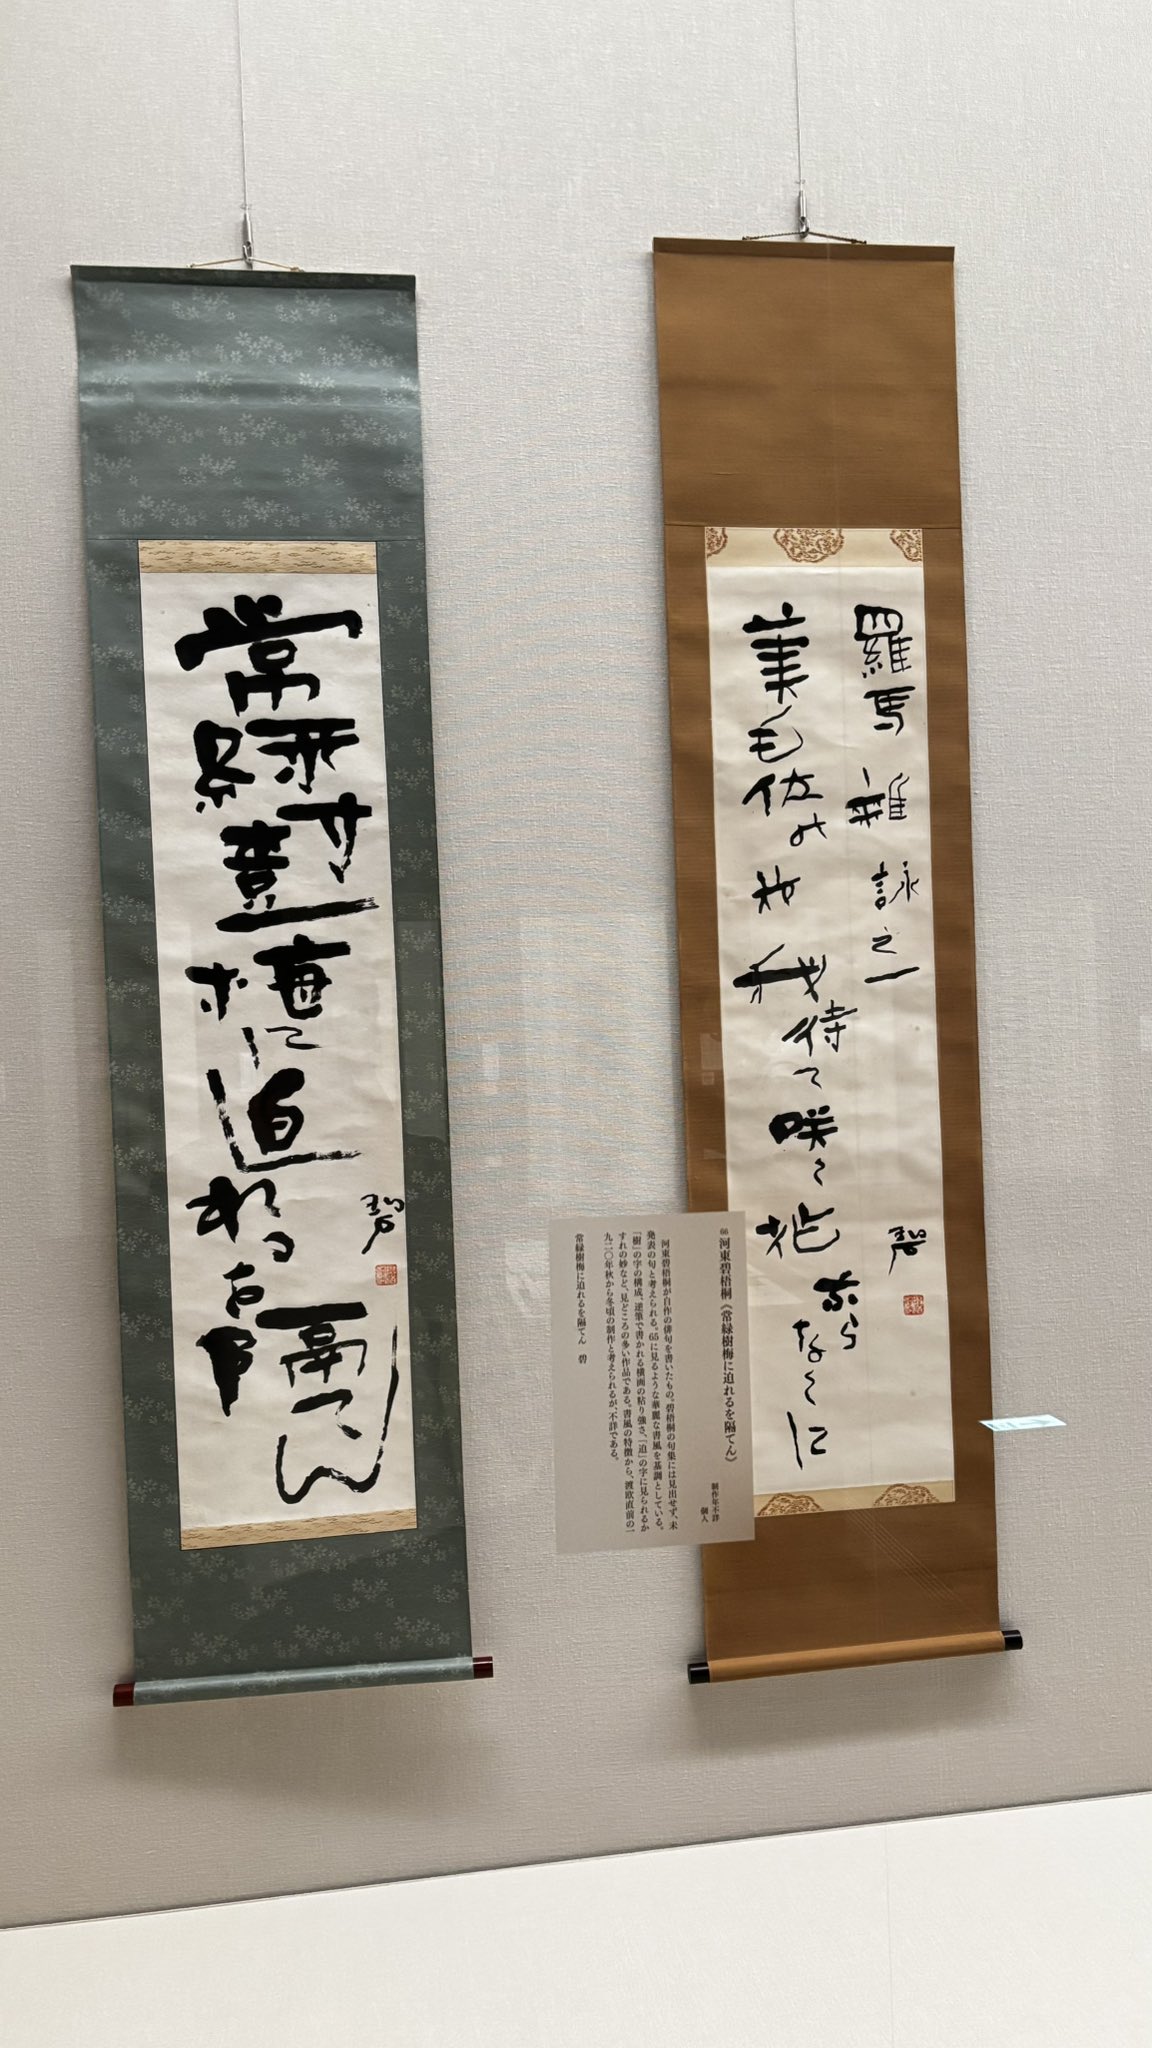 羅馬雑詠之一
美毛佐の 我待て咲く花奈らなくに
碧
66 河東碧梧桐《常緑樹梅に迫れるを隔てん》
制作年不詳
個人
河東碧梧桐が自作の俳句を書いたもの。碧梧桐の句集には見出せず、未
発表の句と考えられる。65に見るような華麗な書風を基調としている。
「樹」の字の構成、逆筆で書かれる横画の粘り強さ、「迫」の字に見られるか
すれの妙など、見どころの多い作品である。書風の特徴から、渡欧直前の一
九二〇年秋から冬頃の制作と考えられるが、不詳である。
常緑樹梅に迫れるを隔てん 碧
常緑樹梅に迫れるを隔てん
碧